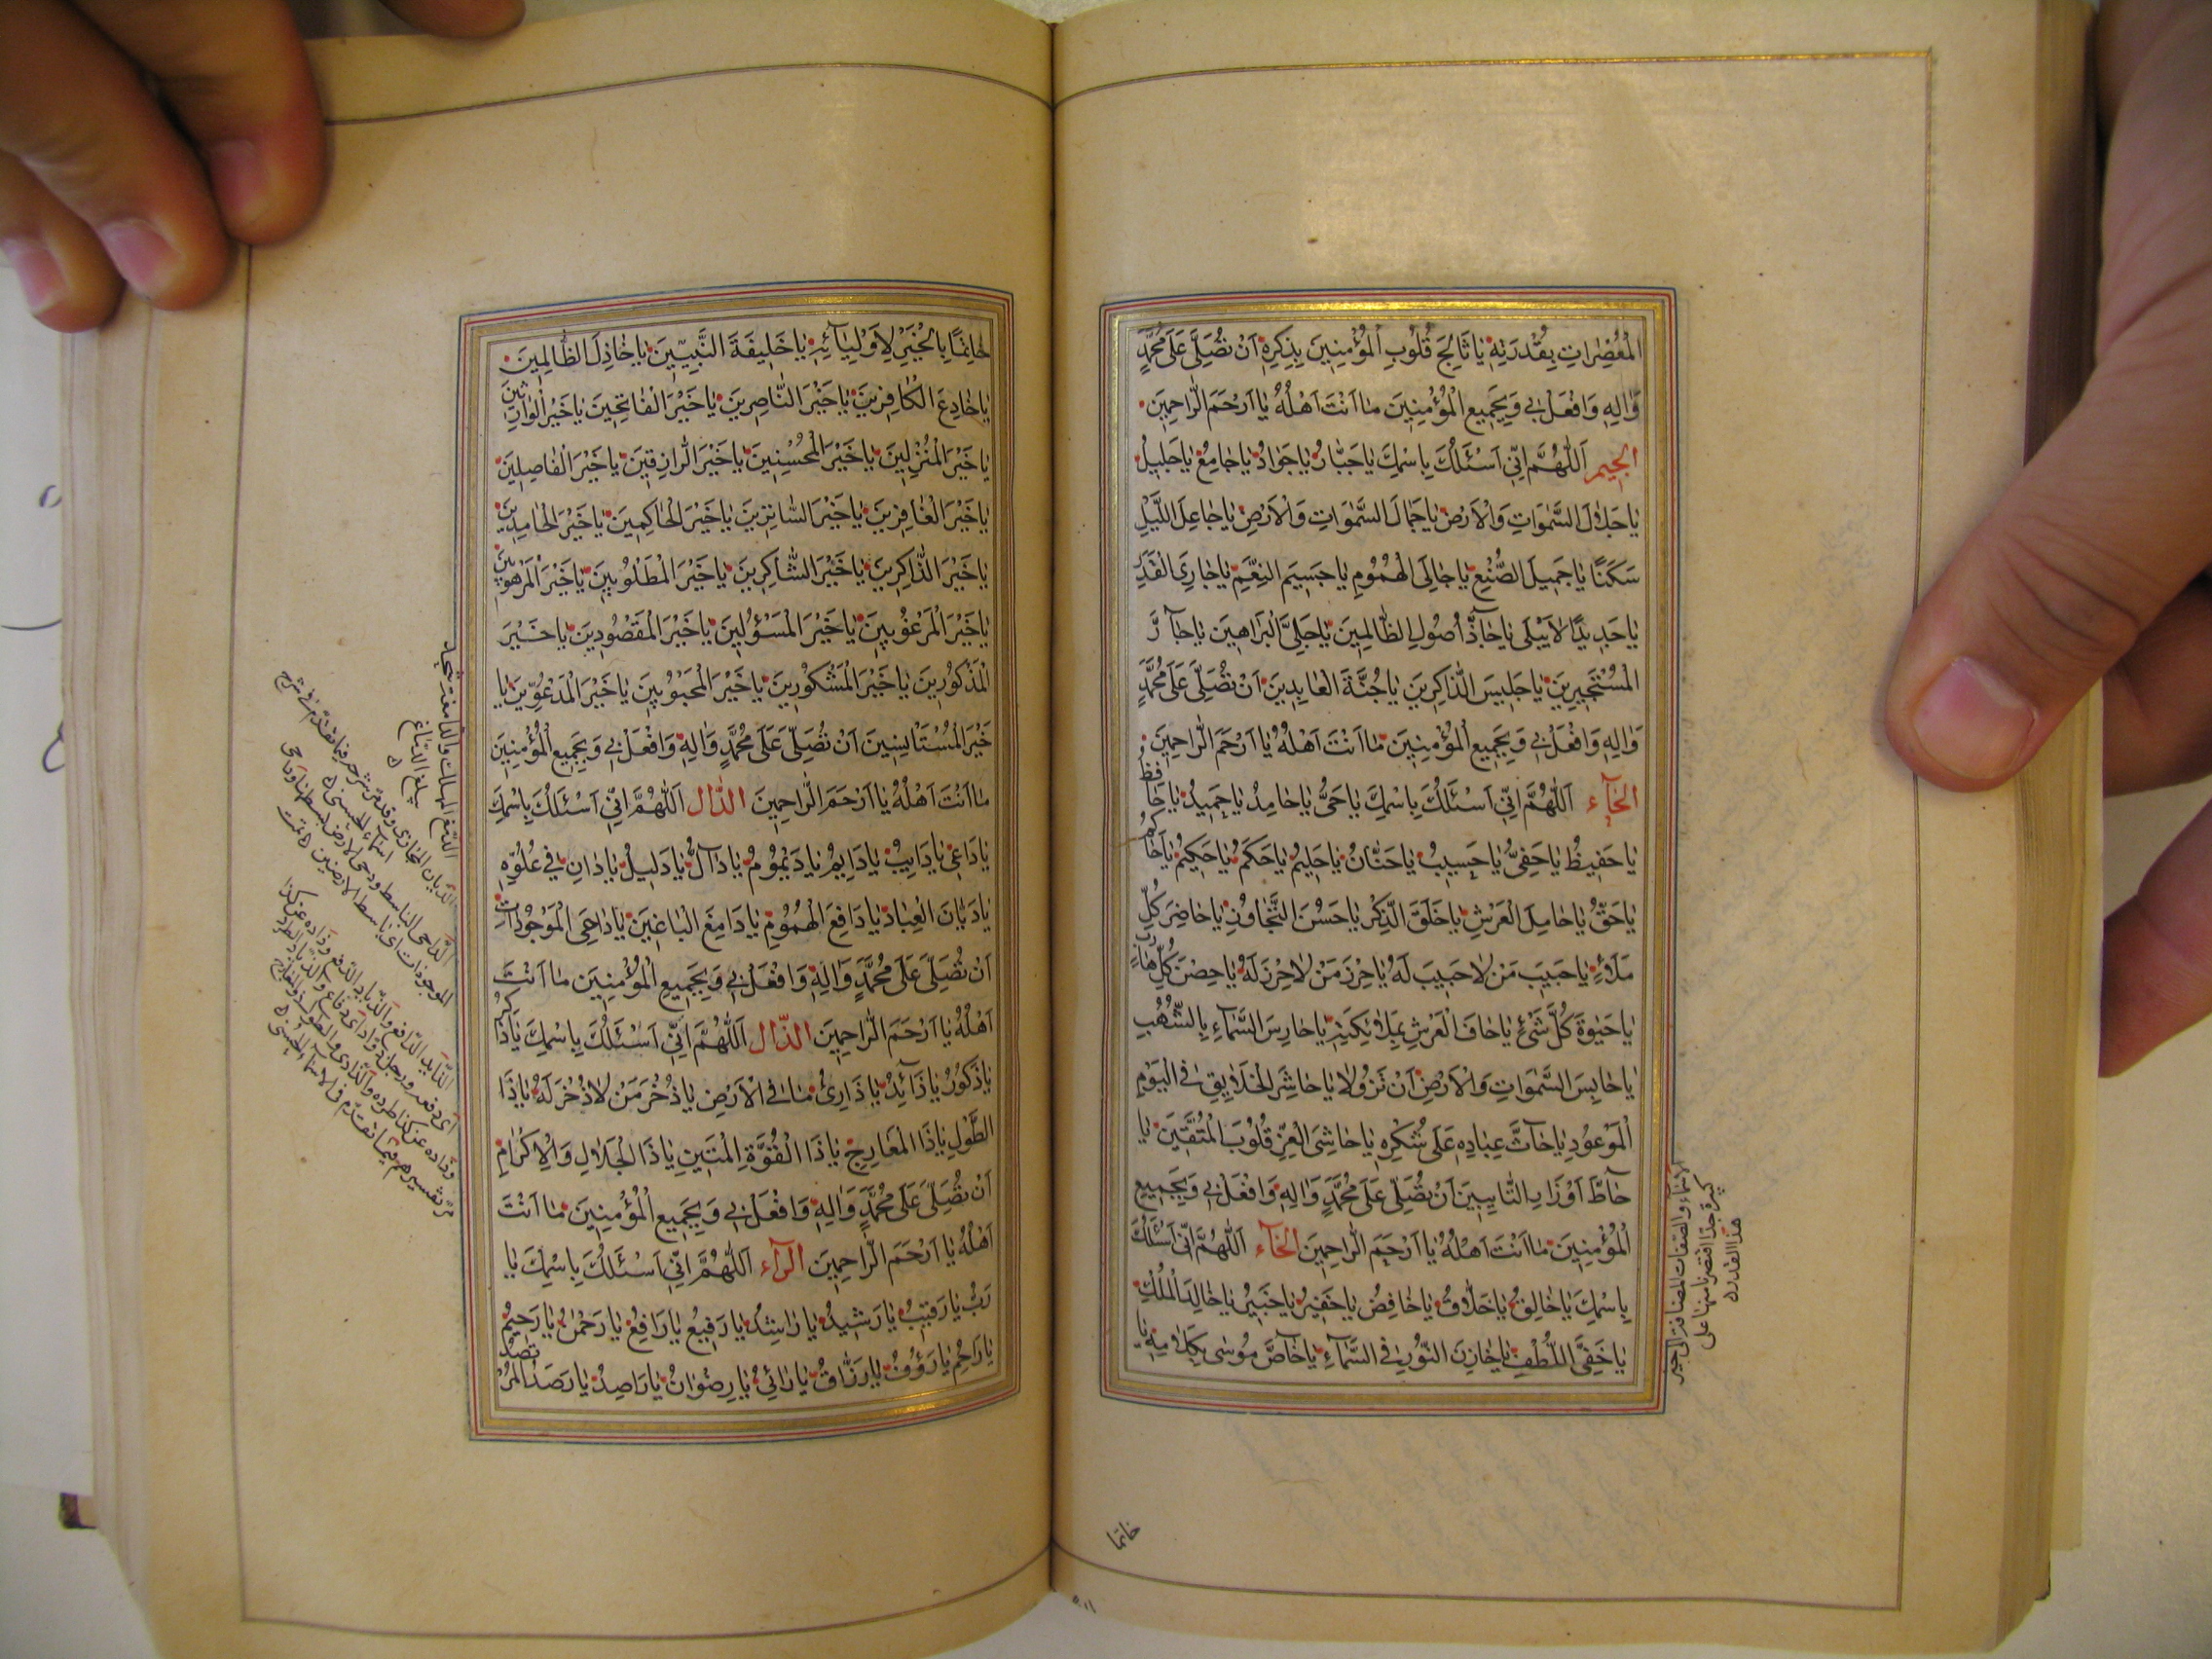 الْمُعْصِرَاتِ بِقُدْرَتِهِ يَا ثَالِجَ قُلُوبِ الْمُؤْمِنِينَ بِذِكْرِهِ اَنْ تُصَلِّىَ عَلَى مُحَمَّدٍ
وَاٰلِهِ وَافْعَلْ بى وَبِجَمِيعِ الْمُؤْمِنِينَ مٰا اَنْتَ اَهْلُهُ يٰا اَرْحَمَ الرَّاحِمِينَ
الجيم اَللّٰهُمَّ اِنّى اَسْئَلُكَ بِاسْمِكَ يَا جَبَّارُ يَا جَوٰادُ يَا جٰامِعُ يَا جَلِيلُ
يَا جَلٰالَ السَّمٰوَاتِ وَالْاَرْضِ يَا جَمَالَ السَّمٰوَاتِ وَالْاَرْضِ يَا جٰاعِلَ اللَّيْلِ
سَكَنًا يَا جَمِيلَ الصُّنْعِ يَا جٰالِىَ الْهُمُومِ يَا جَسِيمَ النِّعَمِ يَا جٰارِىَ الْقَدَرِ
يَا جَدِيدًا لَا يَبْلَى يَا جٰاذَّ اُصُولِ الظّٰالِمِينَ يَا جَلِىَّ الْبَرَاهِينَ يَا جٰارَ
الْمُسْتَجِيرِينَ يَا جَلِيسَ الذّٰاكِرِينَ يَا جُنَّةَ الْعَابِدِينَ اَنْ تُصَلِّىَ عَلَى مُحَمَّدٍ
وَاٰلِهِ وَافْعَلْ بى وَبِجَمِيعِ الْمُؤْمِنِينَ مٰا اَنْتَ اَهْلُهُ يٰا اَرْحَمَ الرَّاحِمِينَ
الحآء اَللّٰهُمَّ اِنّى اَسْئَلُكَ بِاسْمِكَ يَا حَىُّ يَا حٰامِدُ يَا حَمِيدُ يَا حَافِظُ
يَا حَفِيظُ يَا حَفِىُّ يَا حَسِيبُ يَا حَنَّانُ يَا حَلِيمُ يَا حَكَمُ يَا حَكِيمُ يَا حَاكِمُ
يَا حَقُّ يَا حٰامِلَ الْعَرْشِ يَا حَلَقَ الذِّكْرِ يَا حَسَنَ التَّجَاوُزِ يَا حٰاضِرَ كُلِّ
مَلَاءٍ يَا حَبِيبَ مَنْ لٰا حَبِيبَ لَهُ يَا حِرْزَ مَنْ لٰا حِرْزَ لَهُ يَا حِصْنَ كُلِّ هَارِبٍ
يَا حَيٰوةَ كُلِّ شَىْءٍ يَا حٰافَّ الْعَرْشِ بِمَلٰائِكَتِهِ يَا حٰارِسَ السَّمَاءِ بِالشُّهُبِ
يَا حٰابِسَ السَّمٰوَاتِ وَالْاَرْضِ اَنْ تَزُولٰا يَا حٰاشِرَ الْخَلٰايِقِ فى الْيَوْمِ
الْمَوْعُودِ يَا حٰاثَّ عِبٰادِهِ عَلَى شُكْرِهِ يَا حٰاشِىَ الْعِزِّ قُلُوبَ الْمُتَّقِينَ يَا
حٰاطَّ اَوْزَارِ التَّائِبِينَ اَنْ تُصَلِّىَ عَلَى مُحَمَّدٍ وَاٰلِهِ وَافْعَلْ بى وَبِجَمِيعِ
الْمُؤْمِنِينَ مٰا اَنْتَ اَهْلُهُ يٰا اَرْحَمَ الرَّاحِمِينَ الخآء اَللّٰهُمَّ اِنّى اَسْئَلُكَ
بِاسْمِكَ يَا خٰالِقُ يَا خَلّٰاقُ يَا خٰافِضُ يَا خَفِيرُ يَا خَبِيرُ يَا خٰالِدَ الْمُلْكِ
يَا خَفِىَّ اللُّطْفِ يَا خٰازِنَ النُّورِ فى السَّمَاءِ يَا خٰاصَّ مُوسٰى بِكَلٰامِهِ يَا
الاسماء والصفات المضافة الى خير
كثيرة جدا اقتصرنا منها على
هذا القدر
خاتما
خٰاتِمًا بِالْخَيْرِ لِاَوْلِيَآئِهِ يَا خَلِيفَةَ النَّبِيِّينَ يَا خٰاذِلَ الظّٰالِمِينَ
يَا خٰادِعَ الْكٰافِرِينَ يَا خَيْرَ النّٰاصِرِينَ يَا خَيْرَ الْفٰاتِحِينَ يَا خَيْرَ الْوٰارِثِينَ
يَا خَيْرَ الْمُنْزِلِينَ يَا خَيْرَ الْمُحْسِنِينَ يَا خَيْرَ الرّٰازِقِينَ يَا خَيْرَ الْفٰاصِلِينَ
يَا خَيْرَ الْغٰافِرِينَ يَا خَيْرَ السّٰاتِرِينَ يَا خَيْرَ الْحٰاكِمِينَ يَا خَيْرَ الْحٰامِدِينَ
يَا خَيْرَ الذّٰاكِرِينَ يَا خَيْرَ الشّٰاكِرِينَ يَا خَيْرَ الْمَطْلُوبِينَ يَا خَيْرَ الْمَرْهُوبِينَ
يَا خَيْرَ الْمَرْغُوبِينَ يَا خَيْرَ الْمَسْؤُلِينَ يَا خَيْرَ الْمَقْصُودِينَ يَا خَيْرَ
الْمَذْكُورِينَ يَا خَيْرَ الْمَشْكُورِينَ يَا خَيْرَ الْمَحْبُوبِينَ يَا خَيْرَ الْمَدْعُوِّينَ يَا
خَيْرَ الْمُسْتَأْنِسِينَ اَنْ تُصَلِّىَ عَلَى مُحَمَّدٍ وَاٰلِهِ وَافْعَلْ بى وَبِجَمِيعِ الْمُؤْمِنِينَ
مٰا اَنْتَ اَهْلُهُ يٰا اَرْحَمَ الرَّاحِمِينَ الدال اَللّٰهُمَّ اِنّى اَسْئَلُكَ بِاسْمِكَ
يَا دَاعى يَا دَايِبُ يَا دَايِمُ يَا دَيْمُومُ يَا دٰالُّ يَا دَلِيلُ يَا دٰانٍ فى عُلُوِّهِ
يَا دَيّٰانَ الْعِبٰادِ يَا دَافِعَ الْهُمُومِ يَا دَامِغَ الْبٰاغِينَ يَا دٰاحِىَ الْمَوْجُودَاتِ
اَنْ تُصَلِّىَ عَلَى مُحَمَّدٍ وَاٰلِهِ وَافْعَلْ بى وَبِجَمِيعِ الْمُؤْمِنِينَ مٰا اَنْتَ
اَهْلُهُ يٰا اَرْحَمَ الرَّاحِمِينَ الذال اَللّٰهُمَّ اِنّى اَسْئَلُكَ بِاسْمِكَ يَا ذَاكِرُ
يَا ذَكُورُ يَا ذَائِدُ يَا ذَارِئَ مٰا فى الْاَرْضِ يَا ذُخْرَ مَنْ لٰا ذُخْرَ لَهُ يَا ذَا
الطَّوْلِ يَا ذَا الْمَعَارِجِ يَا ذَا الْقُوَّةِ الْمَتِينِ يَا ذَا الْجَلٰالِ وَالْاِكْرَامِ
اَنْ تُصَلِّىَ عَلَى مُحَمَّدٍ وَاٰلِهِ وَافْعَلْ بى وَبِجَمِيعِ الْمُؤْمِنِينَ مٰا اَنْتَ
اَهْلُهُ يٰا اَرْحَمَ الرَّاحِمِينَ الرآء اَللّٰهُمَّ اِنّى اَسْئَلُكَ بِاسْمِكَ يَا
رَبُّ يَا رَقِيبُ يَا رَشِيدُ يَا رٰاشِدُ يَا رَفِيعُ يَا رَافِعُ يَا رَحْمٰنُ يَا رَحِيمُ
يَا رَاحِمُ يَا رَؤُفُ يَا رَزّٰاقُ يَا رٰائى يَا رِضْوٰانُ يَا رَاصِدُ يَا رَصَدَ الْمُرْتَصِدِ